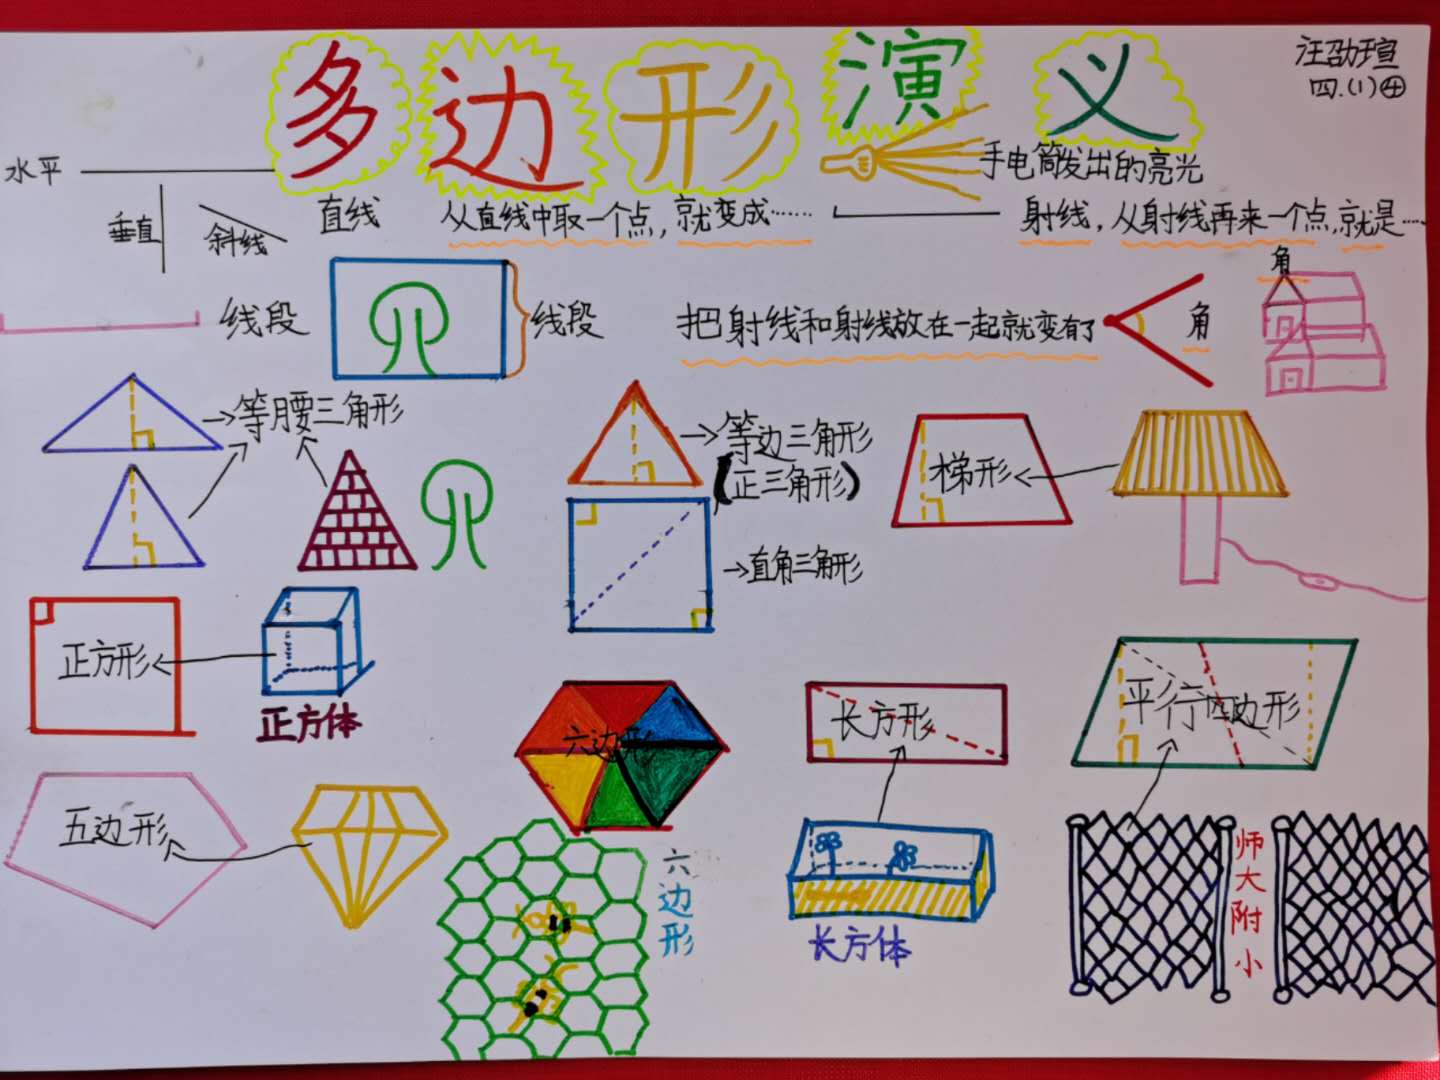 多边形演义
汪劭瑄
四.(1)④
水平
垂直
斜线
直线
从直线中取一个点,就变成……
手电筒发出的亮光
射线,从射线再来一个点,就是……
线段
线段
把射线和射线放在一起就变有了
角
角
等腰三角形
等边三角形
(正三角形)
直角三角形
梯形
正方形
正方体
六边形
长方形
平行四边形
五边形
六边形
长方体
师大附小